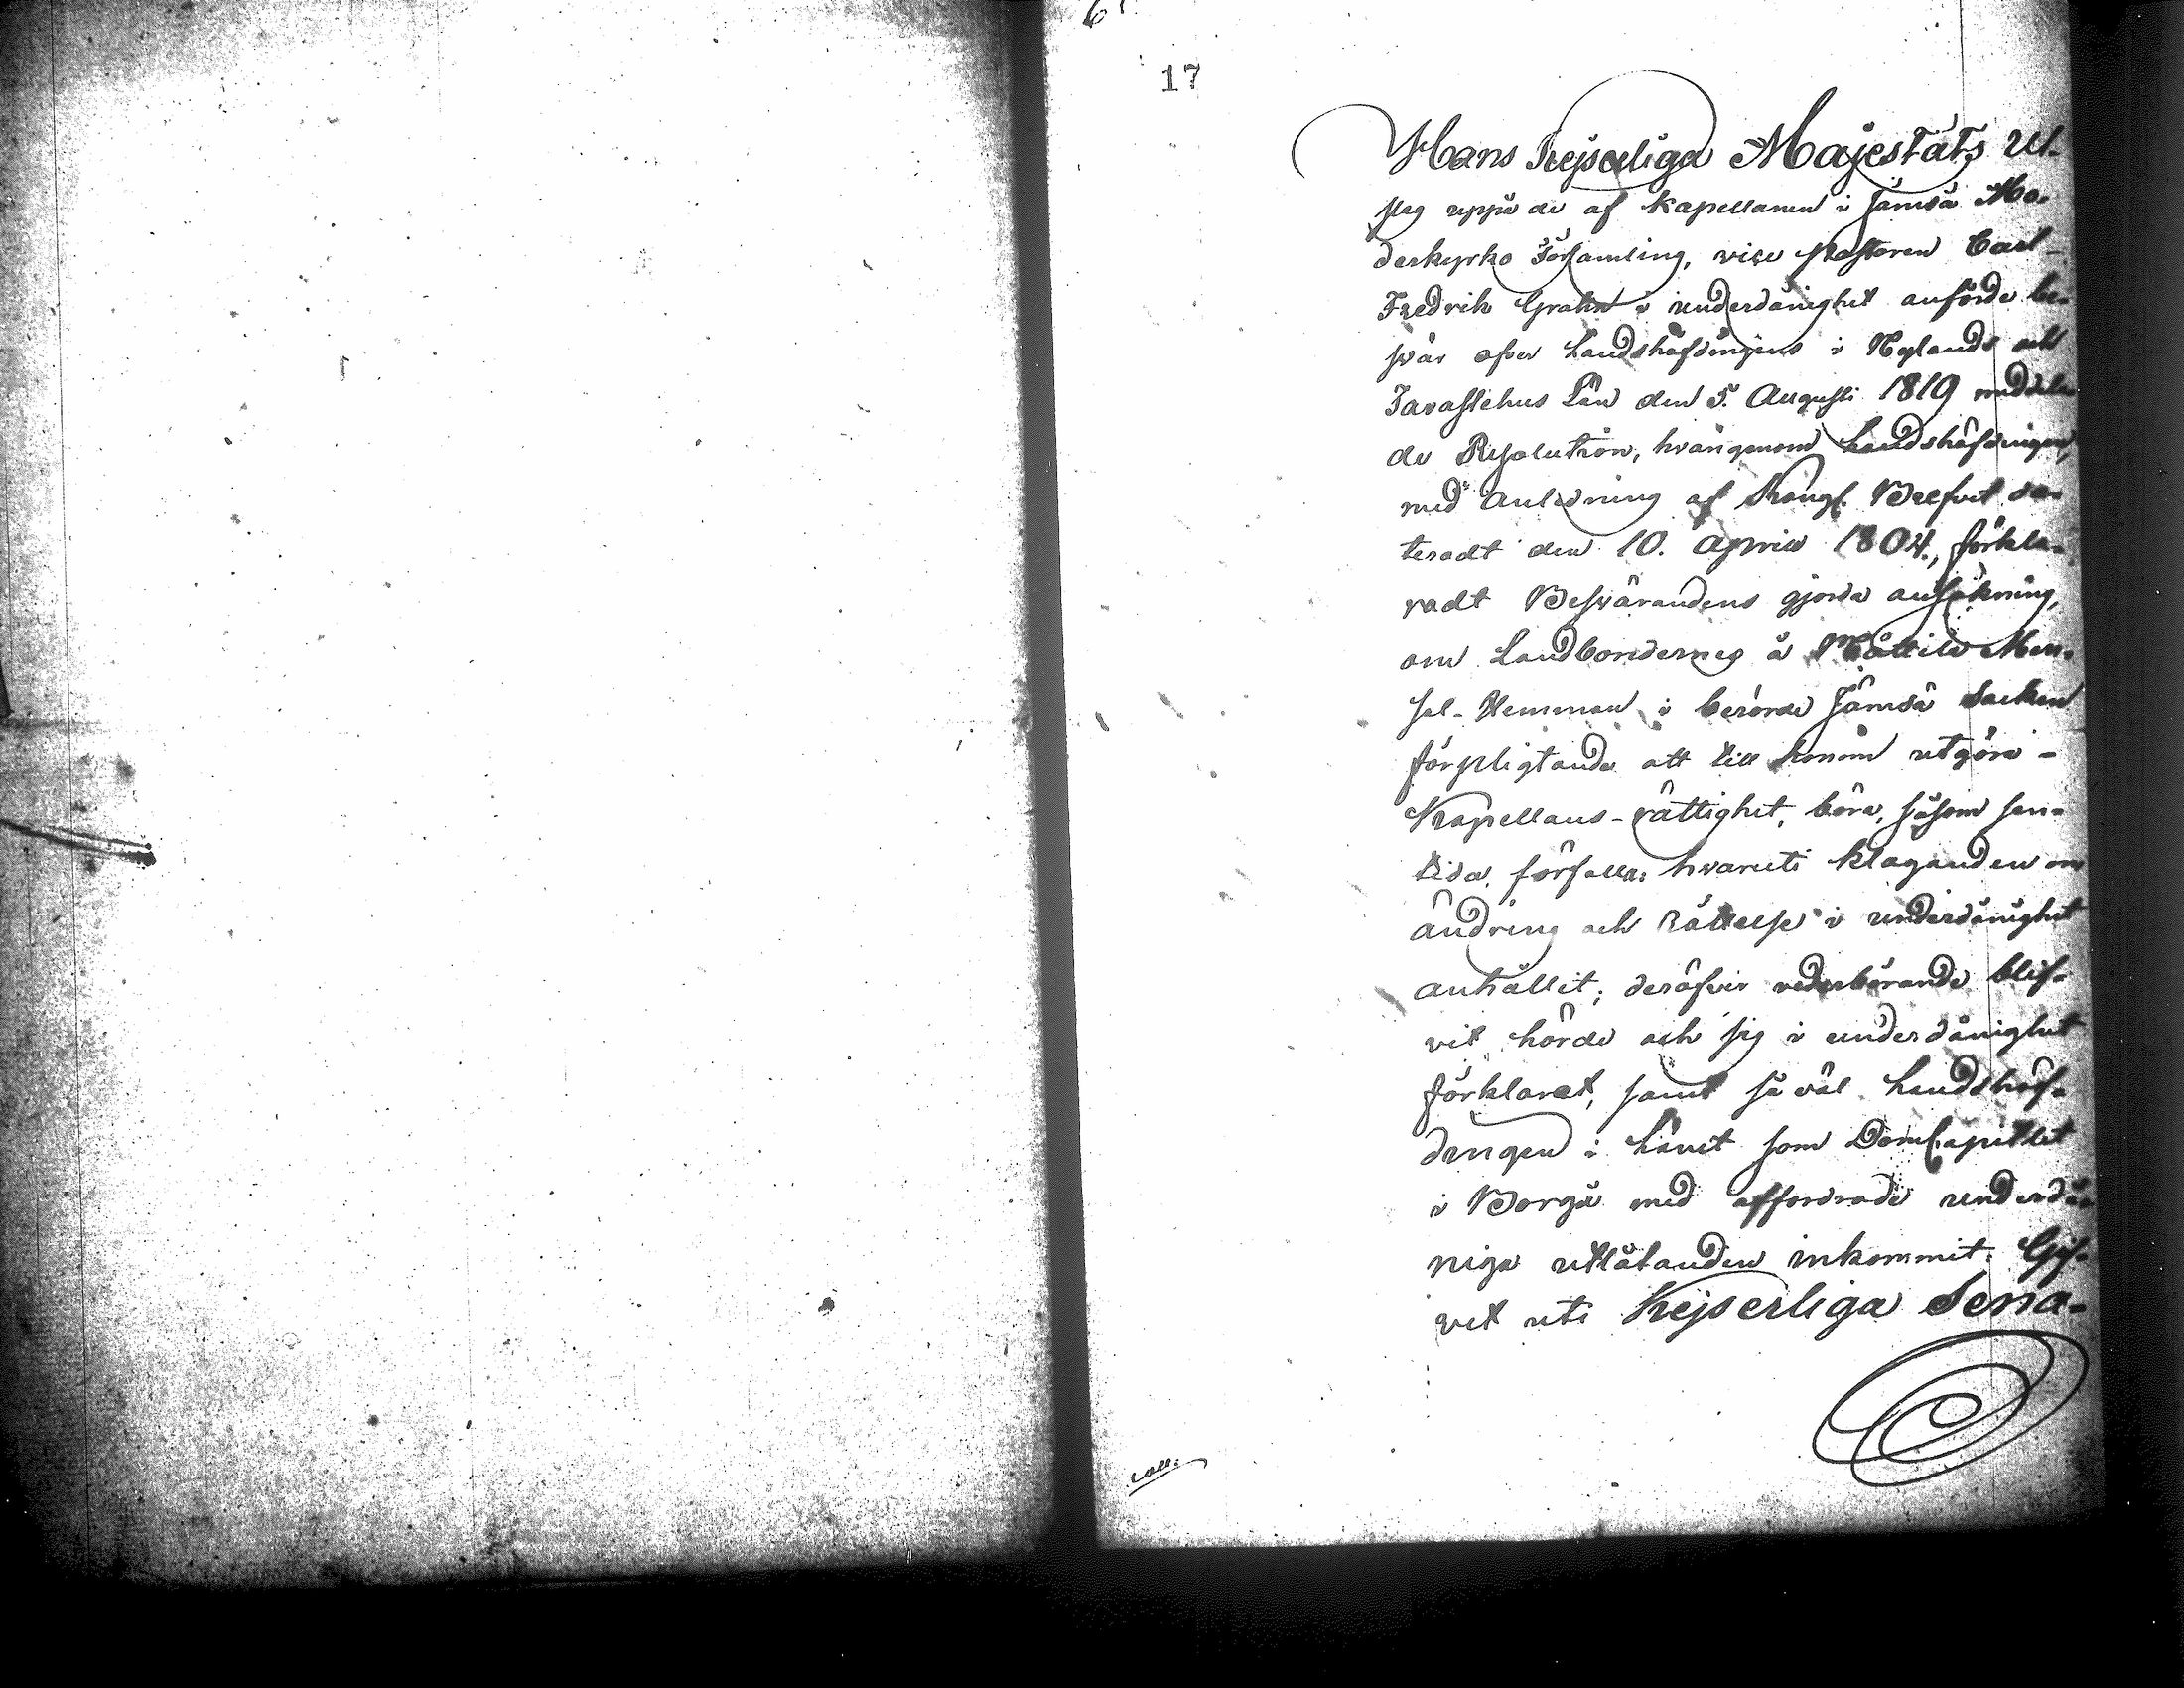 17
Hans Kejserliga Majestäts Ut-
slag uppå de af Kapellanen i Jämsä Mo-
derkyrko Församling, vice Pastoren Carl
Fredrik Grahn i underdånighet anförde be-
svär öfver Landshöfdingens i Nylands och
Tavastehus Län den 5. Augusti 1819 meddela-
de Resolution, hvarigenom Landshöfdingen,
med anledning af Kongl. Brefvet da-
teradt den 10. April 1804, förkla-
radt Besvärandens gjorda ansökning,
om Landbondernes å Mattila Men-
sal-Hemman i berörde Jämsä Socken
förpligtande att till honom utgöra
Kapellans-rättighet, böra, såsom sen-
tida, förfalla: hvaruti klaganden om
ändring och rättelse i underdånighet
anhållit; deröfver vederbörande blif-
vit hörde och sig i underdånighet
förklarat, samt så väl Landshöf-
dingen i Länet som DomCapitlet
i Borgå med affordrade underdå-
niga utlåtanden inkommit. Gif-
vet uti Kejserliga Sena-
Coll.